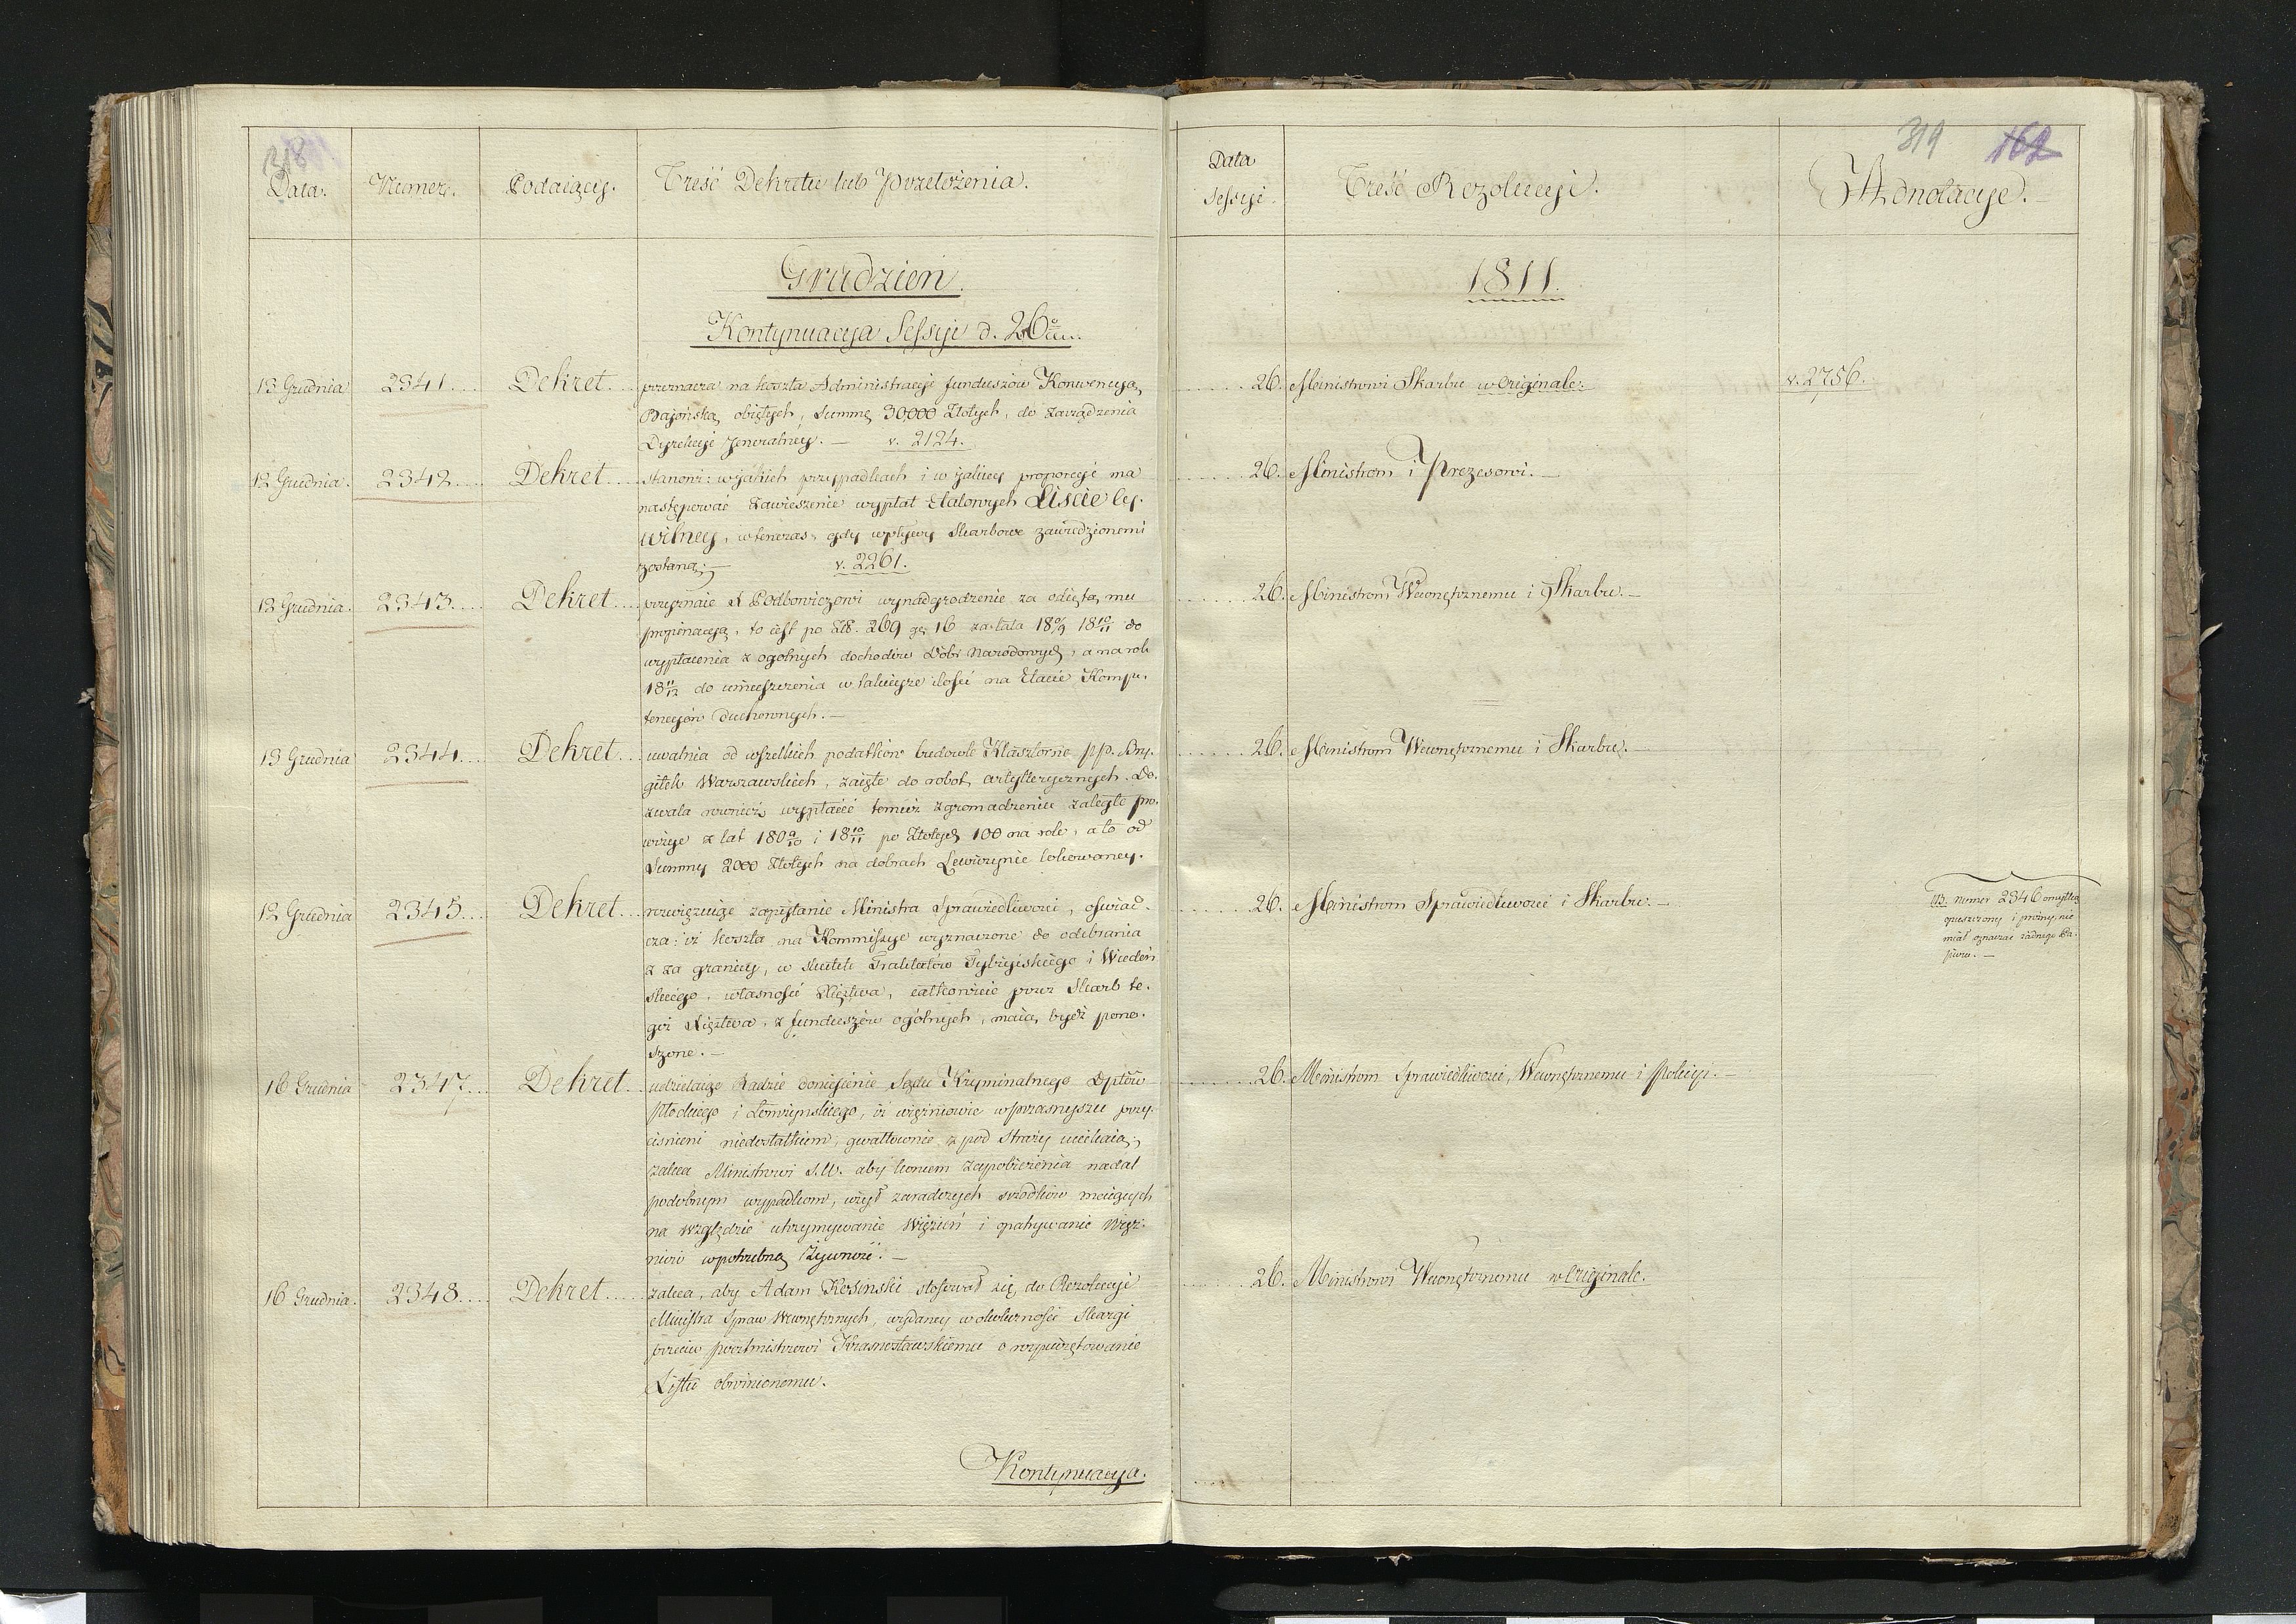 318
Data.
Numer.
Podaiący.
Treść Dekretu lub Przełożenia.
Grudzień.
Kontynuacya Sessyi d. 26º
13 Grudnia 2341.... Dekret....
przeznacza na koszta Administracyi funduszów Konwencyą
Bajońską obiętych, Summę 30,000 Złotych, do zarządzenia
Dyrekcyi Jeneralney. — v. 2124.
12 Grudnia. 2342.... Dekret....
stanowi: w jakich przypadkach i w jakiey proporcyi ma
następować zawieszenie wypłat Etatowych Liscie Cy-
wilney, wtenczas, gdy wpływy Skarbowe zawiedzionemi
zostaną; — v. 2261.
12 Grudnia. 2343.... Dekret....
przyznaie X Podbowiczowi wynadgrodzenie za odiętą mu
propinacyą, to iest po Zł. 269 gr 16 za lata 18 9/ 18 10/11 do
wypłacenia z ogolnych dochodów Dobr Narodowych, a na rok
18 11/12 do umieszczenia w takieyże ilości na Etacie Kompe-
tencyów Duchownych. —
13 Grudnia 2344... Dekret...
uwalnia od wszelkich podatków budowle Klasztorne PP. Bry-
gitek Warszawskich, zaięte do robot artylerycznych. Do-
zwala rownież wypłacić temuż zgromadzeniu zaległe pro-
wizye z lat 180 9/10 i 18 10/11 po Złotych 100 na rok, a to od
Summy 2000 Złotych na dobrach Lewiczynie lokowaney.
12 Grudnia 2345... Dekret...
rozwięzuiąc zapytanie Ministra Sprawiedliwości, oświad-
cza: iż koszta na Kommissye wyznaczone do odebrania
z za granicy, w skutek Traktatów Tylżyckiego i Wiedeń
skiego, własność Xięztwa, całkowicie przez Skarb te-
goż Xięztwa, z funduszów ogólnych, maią bydź pono-
szone. —
16 Grudnia 2347... Dekret...
udzielaiąc Radzie doniesienie Sądu Kryminalnego Dptów
Płockiego i Łomżyńskiego, iż więźniowie w Przasnyszu przy-
ciśnieni niedostatkiem, gwałtownie z pod Straży uciekaią;
zaleca Ministrowi S.W. aby końcem zapobieżenia nadal
podobnym wypadkom, użył zaradczych srodków maiących
na względzie utrzymywanie Więzień i opatrywanie Więź-
niów w potrzebną Żywność. —
16 Grudnia. 2348.... Dekret.....
zaleca, aby Adam Kosinski stosował się do Rezolucyi
Ministra Spraw Wewnętrznych, wydaney w okoliczności Skargi
przeciw poczmistrzowi Krasnostawskiemu o rozpieczętowanie
Listu obwinionemu.
Kontynuacya.
319 162
Data
Sessyi.
Treść Rezolucyi.
Adnotacye. —
1811.
26. Ministrowi Skarbu w Originale. v. 2756.
26. Ministrom i Prezesowi. —
26. Ministrom Wewnętrznemu i Skarbu. —
26. Ministrom Wewnętrznemu i Skarbu. —
26. Ministrom Sprawiedliwości i Skarbu. —
NB. numer 2346 omyłką
opuszczony i próżny, nie
miał oznaczać żadnego Pa-
pieru. —
26. Ministrom Sprawiedliwości, Wewnętrznemu i Policyi. —
26. Ministrowi Wewnętrznemu w Originale.